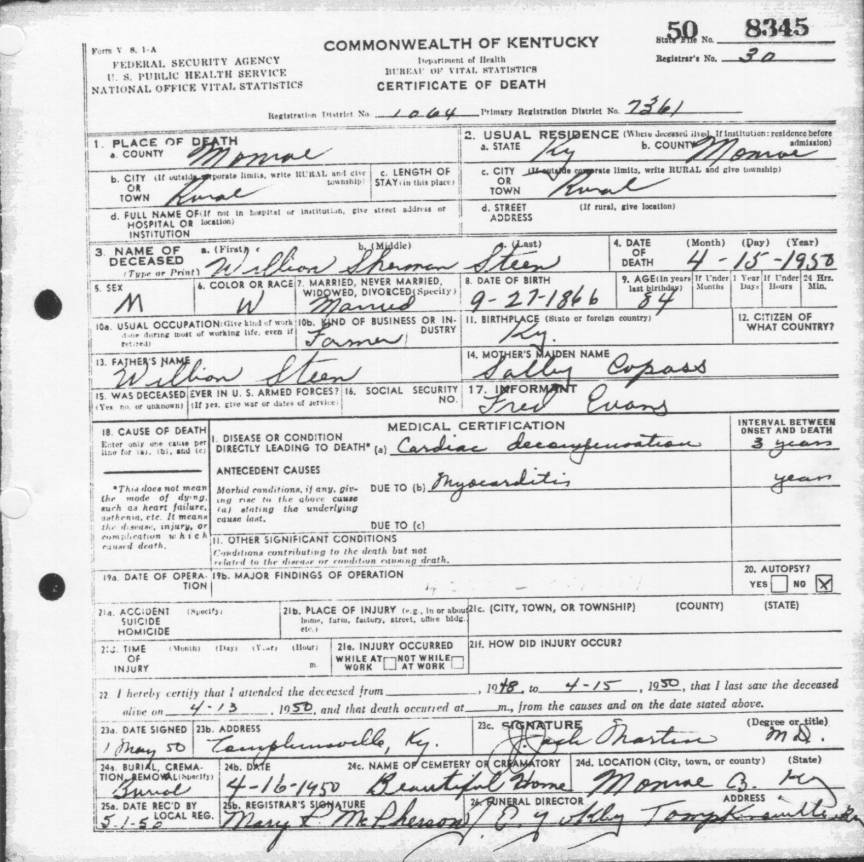 Form V S. 1-A
FEDERAL SECURITY AGENCY
U. S. PUBLIC HEALTH SERVICE
NATIONAL OFFICE VITAL STATISTICS
COMMONWEALTH OF KENTUCKY
Department of Health
BUREAU OF VITAL STATISTICS
CERTIFICATE OF DEATH
State File No. 50 8345
Registrar's No. 30
Registration District No. 1064 Primary Registration District No. 7361
1. PLACE OF DEATH
a. COUNTY Monroe
2. USUAL RESIDENCE (Where deceased lived. If institution: residence before admission)
a. STATE Ky b. COUNTY Monroe
b. CITY (If outside corporate limits, write RURAL and give township)
OR TOWN Rural
c. LENGTH OF STAY (in this place)
c. CITY (If outside corporate limits, write RURAL and give township)
OR TOWN Rural
d. FULL NAME OF (If not in hospital or institution, give street address or location)
HOSPITAL OR INSTITUTION
d. STREET ADDRESS (If rural, give location)
3. NAME OF DECEASED (Type or Print)
a. (First) b. (Middle) c. (Last)
Willion Sherman Steen
4. DATE OF DEATH (Month) (Day) (Year)
4-15-1950
5. SEX
M
6. COLOR OR RACE
W
7. MARRIED, NEVER MARRIED, WIDOWED, DIVORCED (Specify)
Married
8. DATE OF BIRTH
9-27-1866
9. AGE (In years last birthday) If Under 1 Year Months Days If Under 24 Hrs. Hours Min.
84
10a. USUAL OCCUPATION (Give kind of work done during most of working life, even if retired)
10b. KIND OF BUSINESS OR INDUSTRY
Farmer
11. BIRTHPLACE (State or foreign country)
Ky.
12. CITIZEN OF WHAT COUNTRY?
13. FATHER'S NAME
Willion Steen
14. MOTHER'S MAIDEN NAME
Sally Copass
15. WAS DECEASED EVER IN U. S. ARMED FORCES?
(Yes, no, or unknown) (If yes, give war or dates of service)
16. SOCIAL SECURITY NO.
17. INFORMANT
Fred Evans
18. CAUSE OF DEATH
Enter only one cause per line for (a), (b), and (c)
*This does not mean the mode of dying, such as heart failure, asthenia, etc. It means the disease, injury, or complication which caused death.
MEDICAL CERTIFICATION
INTERVAL BETWEEN ONSET AND DEATH
I. DISEASE OR CONDITION DIRECTLY LEADING TO DEATH* (a) Cardiac decompensation 3 years
ANTECEDENT CAUSES
Morbid conditions, if any, giving rise to the above cause (a) stating the underlying cause last.
DUE TO (b) Myocarditis years
DUE TO (c)
II. OTHER SIGNIFICANT CONDITIONS
Conditions contributing to the death but not related to the disease or condition causing death.
19a. DATE OF OPERATION
19b. MAJOR FINDINGS OF OPERATION
20. AUTOPSY?
YES NO X
21a. ACCIDENT SUICIDE HOMICIDE (Specify)
21b. PLACE OF INJURY (e.g., in or about home, farm, factory, street, office bldg., etc.)
21c. (CITY, TOWN, OR TOWNSHIP) (COUNTY) (STATE)
21d. TIME OF INJURY (Month) (Day) (Year) (Hour) m.
21e. INJURY OCCURRED
WHILE AT WORK NOT WHILE AT WORK
21f. HOW DID INJURY OCCUR?
22. I hereby certify that I attended the deceased from , 1948, to 4-15, 1950, that I last saw the deceased
alive on 4-13, 1950, and that death occurred at m., from the causes and on the date stated above.
23a. DATE SIGNED
1 May 50
23b. ADDRESS
Tompkinsville, Ky.
23c. SIGNATURE (Degree or title)
J. Jack Martin M.D.
24a. BURIAL, CREMATION, REMOVAL (Specify)
Burial
24b. DATE
4-16-1950
24c. NAME OF CEMETERY OR CREMATORY
Beautiful Home
24d. LOCATION (City, town, or county) (State)
Monroe Co. Ky
25a. DATE REC'D BY LOCAL REG.
5-1-50
25b. REGISTRAR'S SIGNATURE
Mary P. McPherson
26. FUNERAL DIRECTOR ADDRESS
Tompkinsville Ky